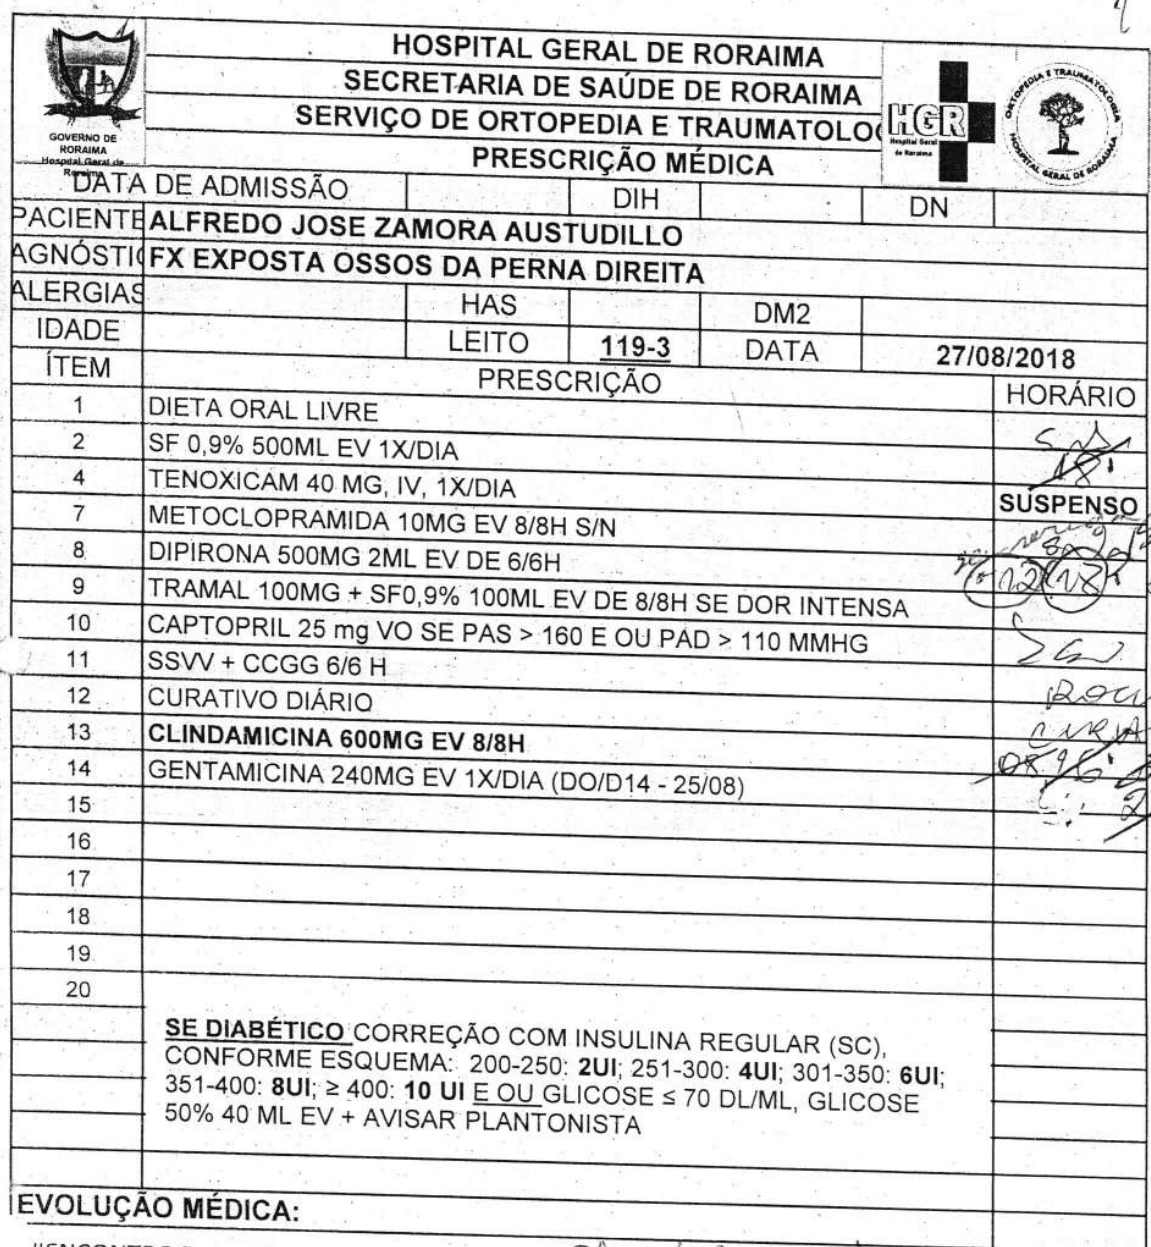 HOSPITAL GERAL DE RORAIMA
SECRETARIA DE SAÚDE DE RORAIMA
SERVIÇO DE ORTOPEDIA E TRAUMATOLOG
PRESCRIÇÃO MÉDICA
GOVERNO DE
RORAIMA
Hospital Geral de
Roraima
HGR
Hospital Geral
de Roraima
ORTOPEDIA E TRAUMATOLOGIA
HOSPITAL GERAL DE RORAIMA
DATA DE ADMISSÃO DIH DN
PACIENTE ALFREDO JOSE ZAMORA AUSTUDILLO
AGNÓSTIC FX EXPOSTA OSSOS DA PERNA DIREITA
ALERGIAS HAS DM2
IDADE LEITO 119-3 DATA 27/08/2018
ÍTEM PRESCRIÇÃO HORÁRIO
1 DIETA ORAL LIVRE
2 SF 0,9% 500ML EV 1X/DIA 18
4 TENOXICAM 40 MG, IV, 1X/DIA SUSPENSO
7 METOCLOPRAMIDA 10MG EV 8/8H S/N
8 DIPIRONA 500MG 2ML EV DE 6/6H 12 18
9 TRAMAL 100MG + SF0,9% 100ML EV DE 8/8H SE DOR INTENSA
10 CAPTOPRIL 25 mg VO SE PAS > 160 E OU PAD > 110 MMHG
11 SSVV + CCGG 6/6 H
12 CURATIVO DIÁRIO
13 CLINDAMICINA 600MG EV 8/8H
14 GENTAMICINA 240MG EV 1X/DIA (DO/D14 - 25/08)
15
16
17
18
19
20
SE DIABÉTICO CORREÇÃO COM INSULINA REGULAR (SC),
CONFORME ESQUEMA: 200-250: 2UI; 251-300: 4UI; 301-350: 6UI;
351-400: 8UI; ≥ 400: 10 UI E OU GLICOSE ≤ 70 DL/ML, GLICOSE
50% 40 ML EV + AVISAR PLANTONISTA
EVOLUÇÃO MÉDICA: